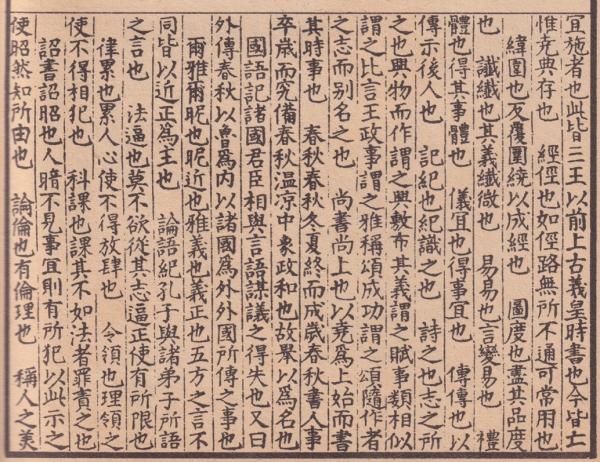 宜施者也此皆三王以前上古羲皇時書也今皆亡
惟尭典存也　經徑也如徑路無所不通可常用也
緯圍也反覆圍繞以成經也　圖度也盡其品度
也　讖纖也其義纖微也　易易也言變易也　禮
體也得其事體也　儀宜也得事宜也　傳傳也以
傳示後人也　記紀也紀識之也　詩之也志之所
之也興物而作謂之興敷布其義謂之賦事類相似
謂之比言王政事謂之雅稱頌成功謂之頌隨作者
之志而别名之也　尚書尚上也以尭爲上始而書
其時事也　春秋春秋冬夏終而成歲春秋書人事
卒歲而究備春秋温凉中象政和也故舉以爲名也
國語記諸國君臣相與言語謀議之得失也又曰
外傳春秋以魯爲内以諸國爲外外國所傳之事也
爾雅爾昵也昵近也雅義也義正也五方之言不
同皆以近正爲主也　論語紀孔子與諸弟子所語
之言也　法逼也莫不欲從其志逼正使有所限也
律累也累人心使不得放肆也　令領也理領之
使不得相犯也　科課也課其不如法者罪責之也
詔書詔昭也人暗不見事宜則有所犯以此示之
使昭然知所由也　論倫也有倫理也　稱人之美